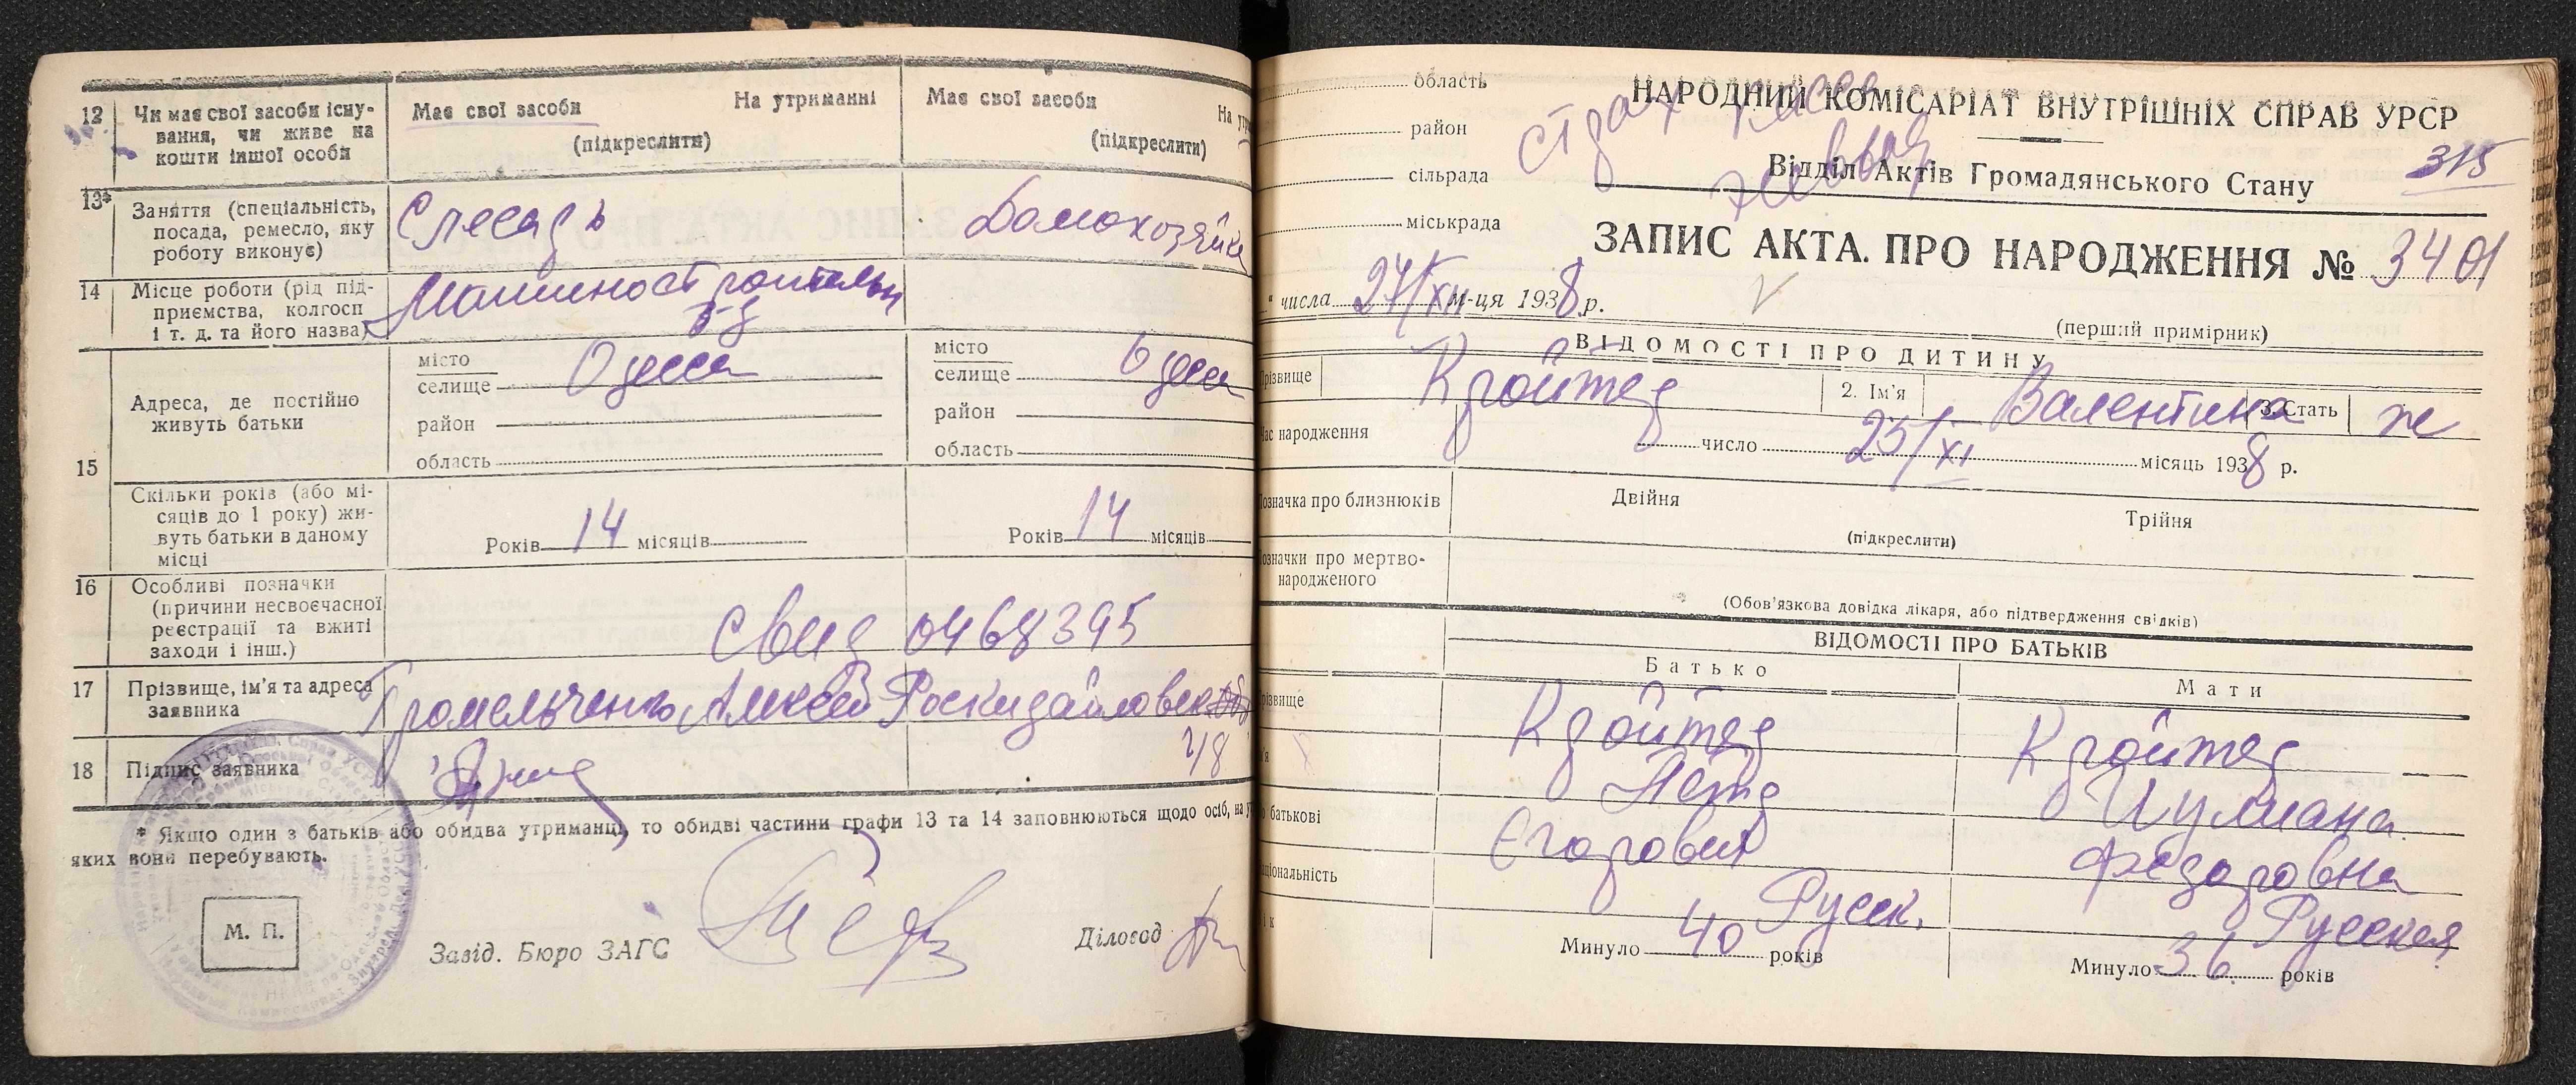 12
Чи має свої засоби існу-
вання, чи живе на
кошти іншої особи
Має свої засоби На утриманні
(підкреслити)
Має свої засоби
(підкреслити)
13*
Заняття (спеціальність,
посада, ремесло, яку
роботу виконує)
Слесарь
Домохозяйка
14
Місце роботи (рід під-
приємства, колгосп
і т. д. та його назва)
15
Адреса, де постійно
живуть батьки
місто
селище Одесса
район
область
місто
селище Одесса
район
область
Скільки років (або мі-
сяців до 1 року) жи-
вуть батьки в даному
місці
Років 14 місяців
Років 14 місяців
16
Особливі позначки
(причини несвоєчасної
реєстрації та вжиті
заходи і інш.)
Свид 0468395
17
Прізвище, ім'я та адреса
заявника
18
Підпис заявника
* Якщо один з батьків або обидва утриманці, то обидві частини графи 13 та 14 заповнюються щодо осіб, на у
яких вони перебувають.
М. П.
Завід. Бюро ЗАГС
Діловод
область
район
сільрада
міськрада
НАРОДНИЙ КОМІСАРІАТ ВНУТРІШНІХ СПРАВ УРСР
Відділ Актів Громадянського Стану
315
ЗАПИС АКТА ПРО НАРОДЖЕННЯ № 3401
" числа 27/XII м-ця 1938 р.
(перший примірник)
ВІДОМОСТІ ПРО ДИТИНУ
Прізвище Кройтер 2. Ім'я Валентина 3. Стать ж
Час народження число 25/XI місяць 1938 р.
Позначка про близнюків
Двійня
Трійня
(підкреслити)
Позначки про мертво-
народженого
(Обов'язкова довідка лікаря, або підтвердження свідків)
ВІДОМОСТІ ПРО БАТЬКІВ
Батько
Мати
Прізвище Кройтер Кройтер
Петр
По батькові Єгорович Федоровна
Національність Русск. Русская
Вік
Минуло 40 років
Минуло 36 років